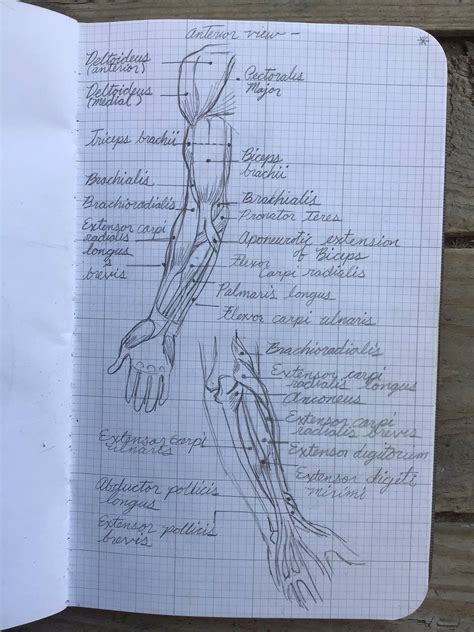 Anterior view -
Deltoideus
(anterior)
Pectoralis
Major
Deltoideus
(medial)
Triceps brachii
Biceps
brachii
Brachialis
Brachioradialis
Brachialis
Pronator teres
Extensor carpi
radialis
longus
&
brevis
Aponeurotic extension
of Biceps
Flexor
Carpi radialis
Palmaris longus
Flexor carpi ulnaris
Brachioradialis
Extensor carpi
radialis longus
Anconeus
Extensor carpi
radialis brevis
Extensor carpi
ulnaris
Extensor digitorum
Extensor digiti
minimi
Abductor pollicis
longus
Extensor pollicis
brevis